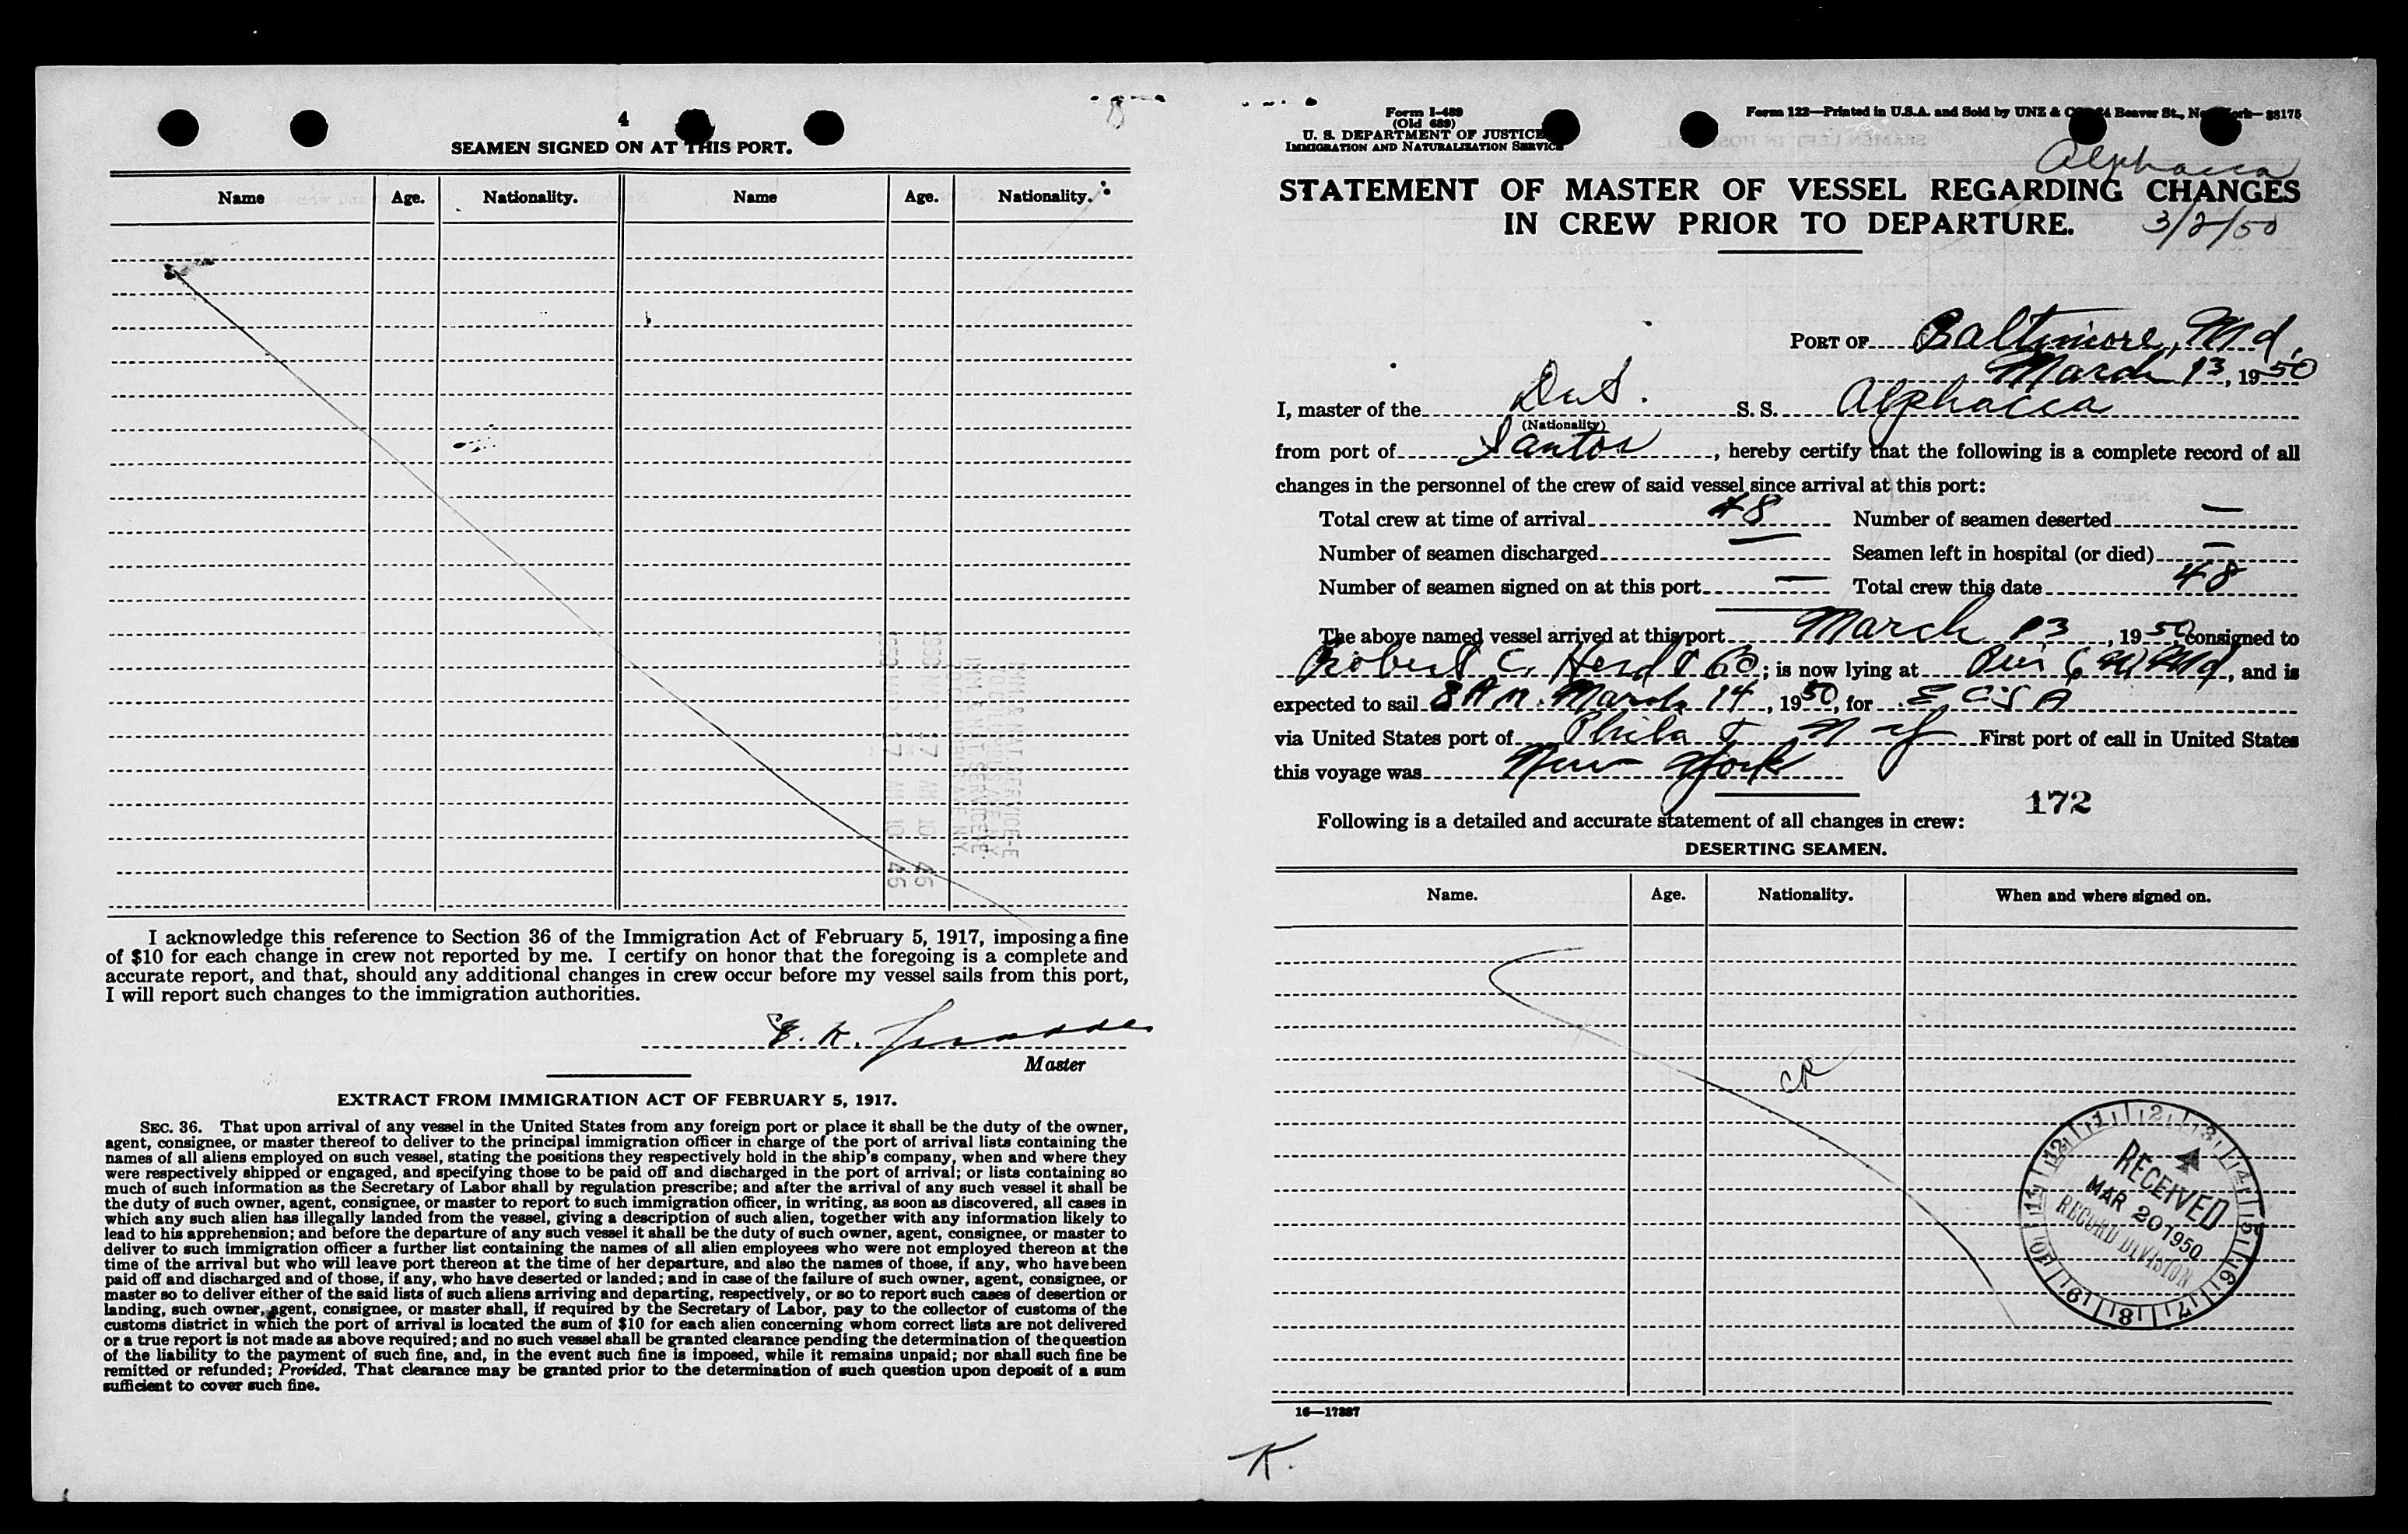 4
SEAMEN SIGNED ON AT THIS PORT.
Name Age. Nationality. Name Age. Nationality.
I acknowledge this reference to Section 36 of the Immigration Act of February 5, 1917, imposing a fine
of $10 for each change in crew not reported by me. I certify on honor that the foregoing is a complete and
accurate report, and that, should any additional changes in crew occur before my vessel sails from this port,
I will report such changes to the immigration authorities.
Master
EXTRACT FROM IMMIGRATION ACT OF FEBRUARY 5, 1917.
SEC. 36. That upon arrival of any vessel in the United States from any foreign port or place it shall be the duty of the owner,
agent, consignee, or master thereof to deliver to the principal immigration officer in charge of the port of arrival lists containing the
names of all aliens employed on such vessel, stating the positions they respectively hold in the ship's company, when and where they
were respectively shipped or engaged, and specifying those to be paid off and discharged in the port of arrival; or lists containing so
much of such information as the Secretary of Labor shall by regulation prescribe; and after the arrival of any such vessel it shall be
the duty of such owner, agent, consignee, or master to report to such immigration officer, in writing, as soon as discovered, all cases in
which any such alien has illegally landed from the vessel, giving a description of such alien, together with any information likely to
lead to his apprehension; and before the departure of any such vessel it shall be the duty of such owner, agent, consignee, or master to
deliver to such immigration officer a further list containing the names of all alien employees who were not employed thereon at the
time of the arrival but who will leave port thereon at the time of her departure, and also the names of those, if any, who have been
paid off and discharged and of those, if any, who have deserted or landed; and in case of the failure of such owner, agent, consignee, or
master so to deliver either of the said lists of such aliens arriving and departing, respectively, or so to report such cases of desertion or
landing, such owner, agent, consignee, or master shall, if required by the Secretary of Labor, pay to the collector of customs of the
customs district in which the port of arrival is located the sum of $10 for each alien concerning whom correct lists are not delivered
or a true report is not made as above required; and no such vessel shall be granted clearance pending the determination of the question
of the liability to the payment of such fine, and, in the event such fine is imposed, while it remains unpaid; nor shall such fine be
remitted or refunded; Provided, That clearance may be granted prior to the determination of such question upon deposit of a sum
sufficient to cover such fine.
Form I-489
(Old 689)
U. S. DEPARTMENT OF JUSTICE
IMMIGRATION AND NATURALIZATION SERVICE
Form 122—Printed in U.S.A. and Sold by UNZ & Beaver St., 
Alphacca
STATEMENT OF MASTER OF VESSEL REGARDING CHANGES
IN CREW PRIOR TO DEPARTURE.
3/2/50
PORT OF Baltimore, Md.
March 13, 1950
I, master of the Dut. S. S. Alphacca
(Nationality)
from port of Santos, hereby certify that the following is a complete record of all
changes in the personnel of the crew of said vessel since arrival at this port:
Total crew at time of arrival 48 Number of seamen deserted —
Number of seamen discharged — Seamen left in hospital (or died) —
Number of seamen signed on at this port — Total crew this date 48
The above named vessel arrived at this port March 13, 1950, consigned to
Robert C. Herd & Co; is now lying at Pier 6 Md, and is
expected to sail 8 AM. March 14, 1950, for E C S A
via United States port of Phila & N Y First port of call in United States
this voyage was New York
172
Following is a detailed and accurate statement of all changes in crew:
DESERTING SEAMEN.
Name. Age. Nationality. When and where signed on.
CR
RECEIVED
MAR 20 1950
RECORD DIVISION
16—17387
K.